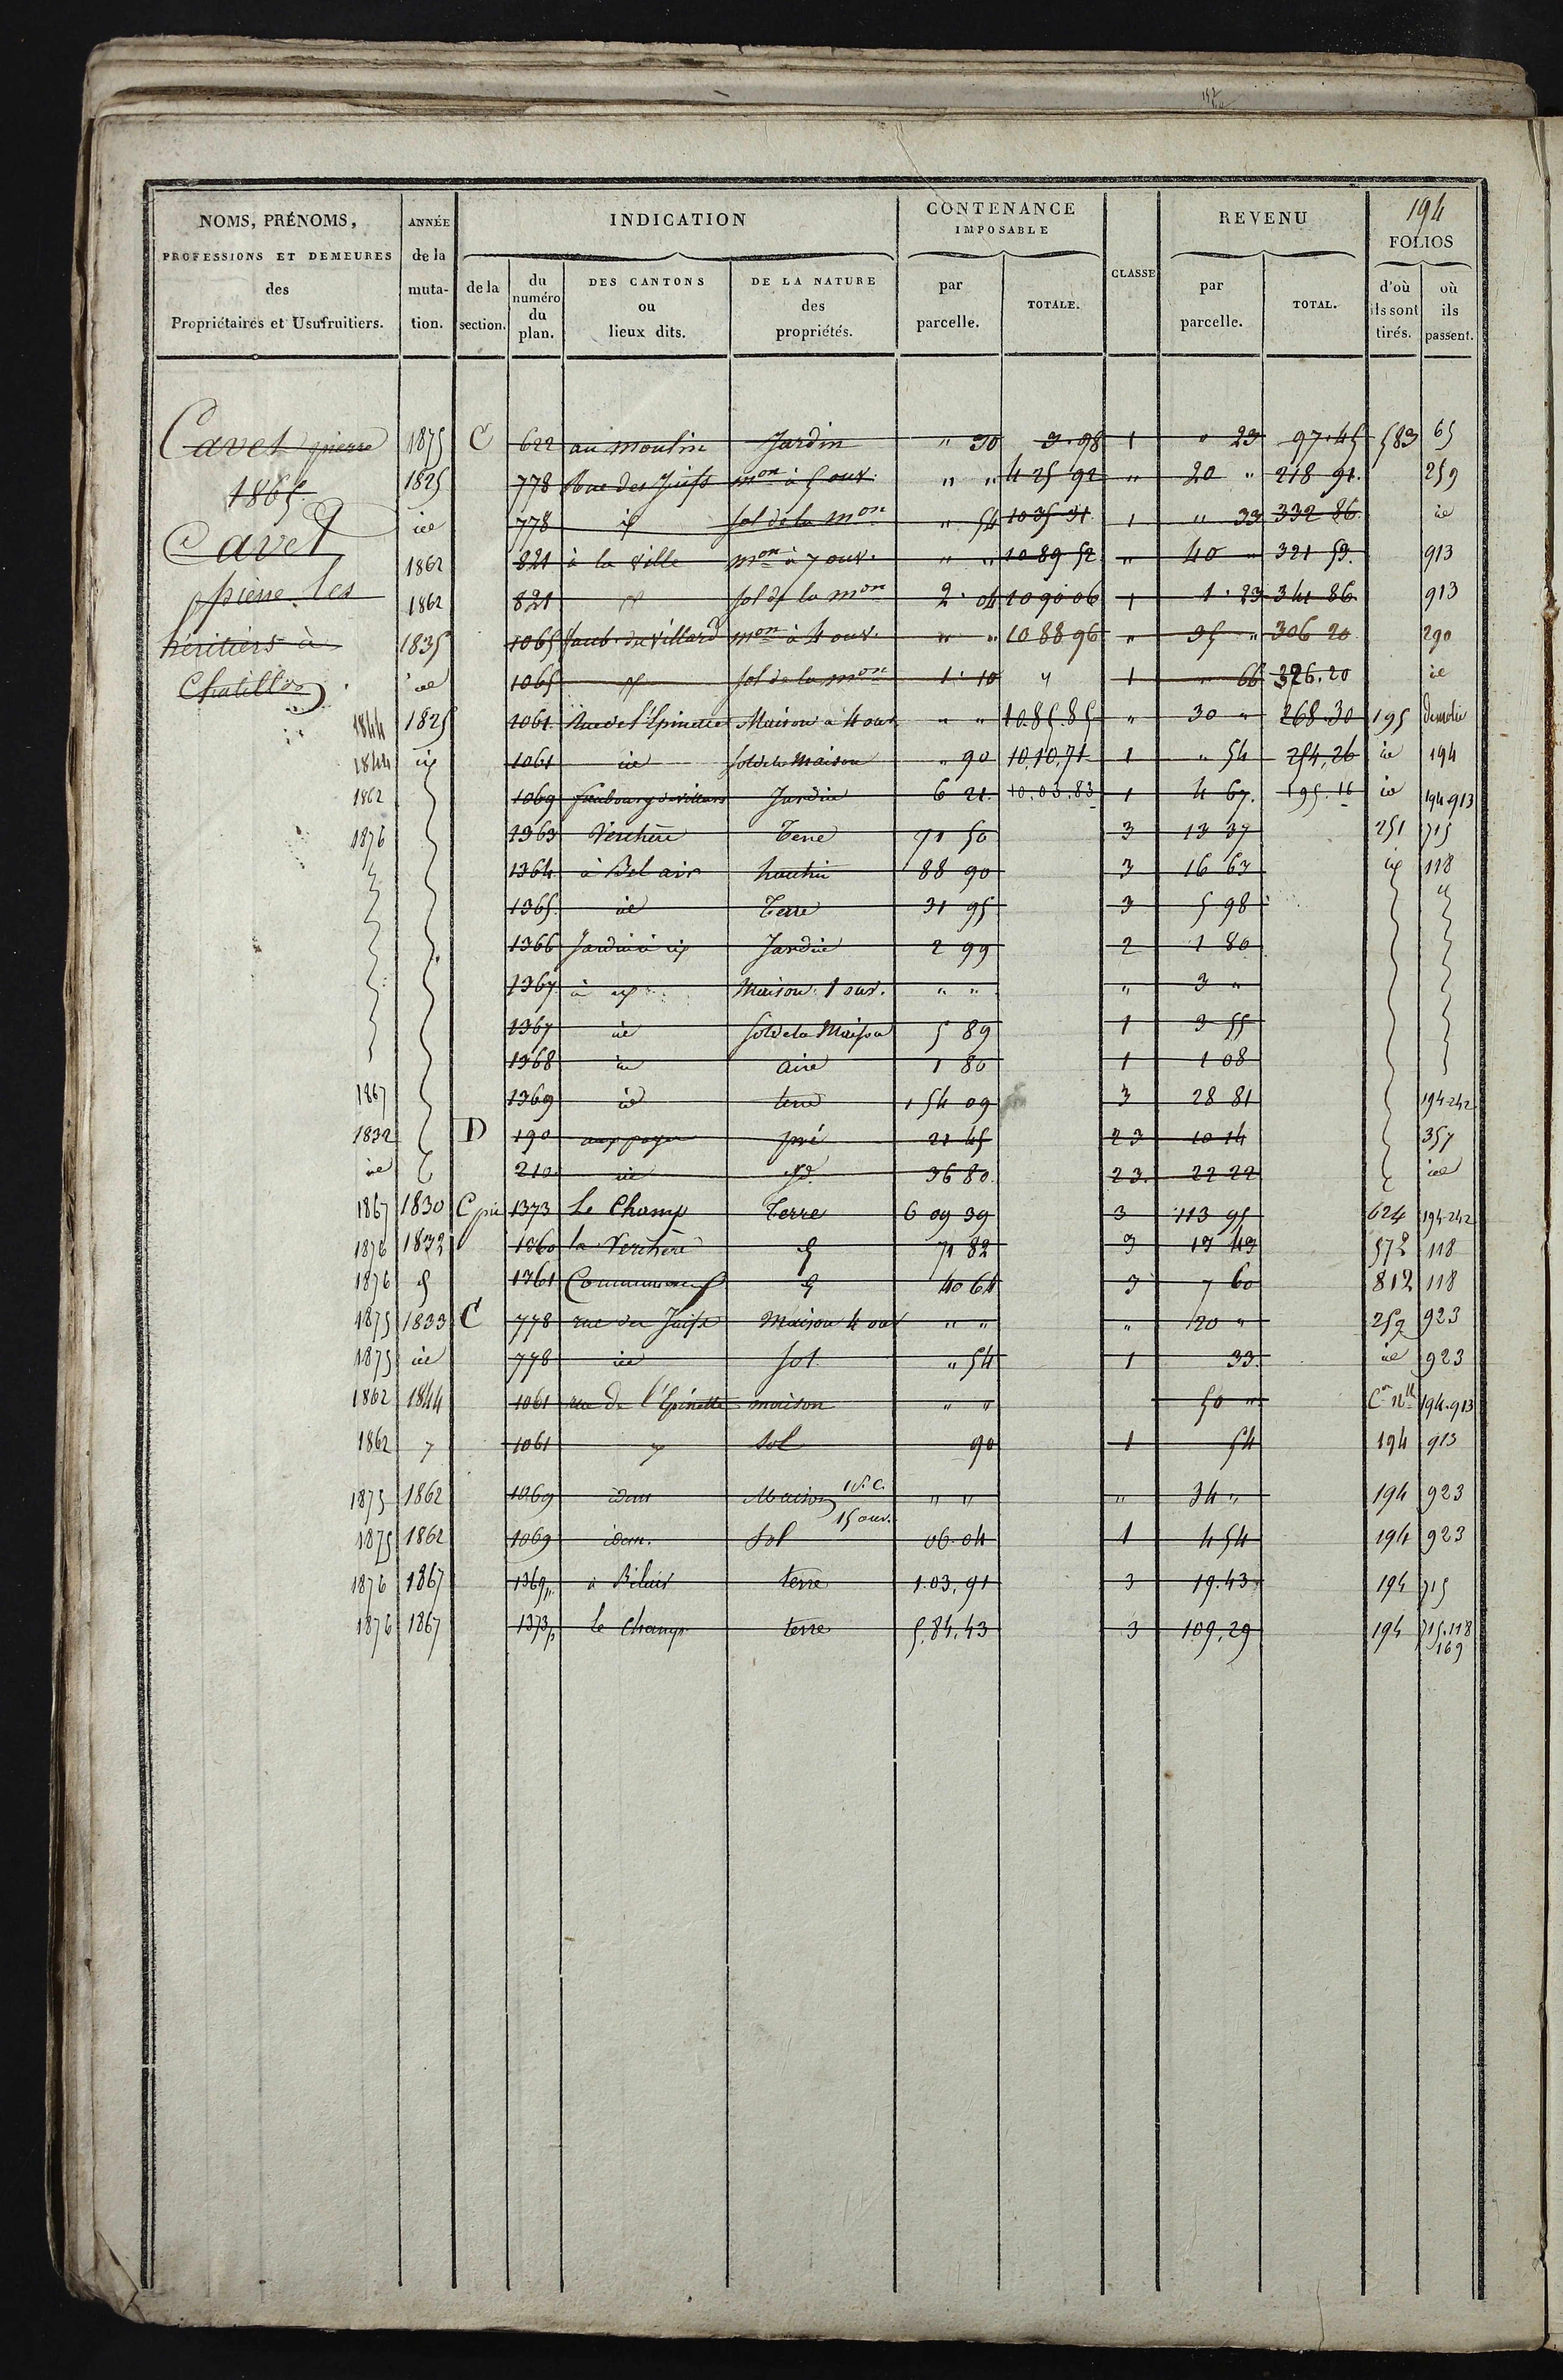 194
NOMS, PRÉNOMS, PROFESSIONS ET DEMEURES des Propriétaires et Usufruitiers.
ANNÉE de la muta-tion.
INDICATION
de la section.
du numéro du plan.
DES CANTONS ou lieux dits.
DE LA NATURE des propriétés.
CONTENANCE IMPOSABLE
par parcelle.
TOTALE.
CLASSE
REVENU
par parcelle.
TOTAL.
FOLIOS
d'où ils sont tirés.
où ils passent.
Cavet pierre 1875 C 622 au moulin Jardin " 30 3.98 1 " 23 97.45 583 65
1865 1825 778 Rue des Juifs mon à 5 ouv. " " 4 25 92 " 20 " 218 91. 259
Cavet ie 778 id sol de la mon " 54 10 35 31 1 " 33 332 86 ie
1862 821 à la ville mon à 7 ouv. " " 10 89 52 " 40 " 321 53. 913
pierre les 1862 821 id sol de la mon 2. 04 10 90 06 1 1. 23 341 86 913
héritiers à 1835 1065 faub. du villard mon à 4 ouv. " " 10 88 96 " 35 " 306 20 290
Chatillon ie 1065 id sol de la mon 1. 10 " 1 " 66 326.20 ie
1844 1825 1061 Rue de l'Epinette Maison à 4 ouv " " 10.85.85 " 30 " 268.30 195 demolie
1844 id 1061 ie sol de la Maison " 90 10.10.71 1 " 54 254,26 ie 194
1862 1069 faubourg de villars Jardin 6 21. 10.03.83 1 4 67. 195.16 ie 194-913
1876 1363 Verchère Terre 71 50 3 13 37 251 715
1364 à Bel air hautin 88 90 3 16 63 id 118
1365 ie Terre 31 95 3 5 98 "
1366 Jardin à id Jardin 2 99 2 1 80
1367 à id Maison 1 ouv. " " " 3 "
1367 ie sol de la Maison 5 89 1 3 55
1368 ie aire 1 80 1 1 08
1867 1369 ie terre 1 54 09 3 28 81 194-242
1832 D 190 pré 21 45 23 10 14 357
ie 210 ie id. 36 80 23. 22 22 ie
1867 1830 C 1373 Le Champ Terre 6 09 39 3 113 95 624 194-242
1876 1832 1060 la Verchère id 71 82 3 13 43 572 118
1876 id 1361 id 40 64 3 7 60 812 118
1875 1833 C 778 rue des Juifs Maison 4 ouv " " " 20 " 259 923
1875 ie 778 ie sol " 54 1 33 ie 923
1862 1844 1061 rue de l'Epinette maison " " 50 " Con nlle 194.913
1862 " 1061 " sol 90 1 54 194 913
1875 1862 1069 idem Maison 15 ouv. " " " 34 " 194 923
1875 1862 1069 idem. Sol 06.04 1 4 54 194 923
1876 1867 1369p à Bélair terre 1.03.91 3 19.43 194 715
1876 1867 1373p le Champ terre 5.84.43 3 109.29 194 715.118
169